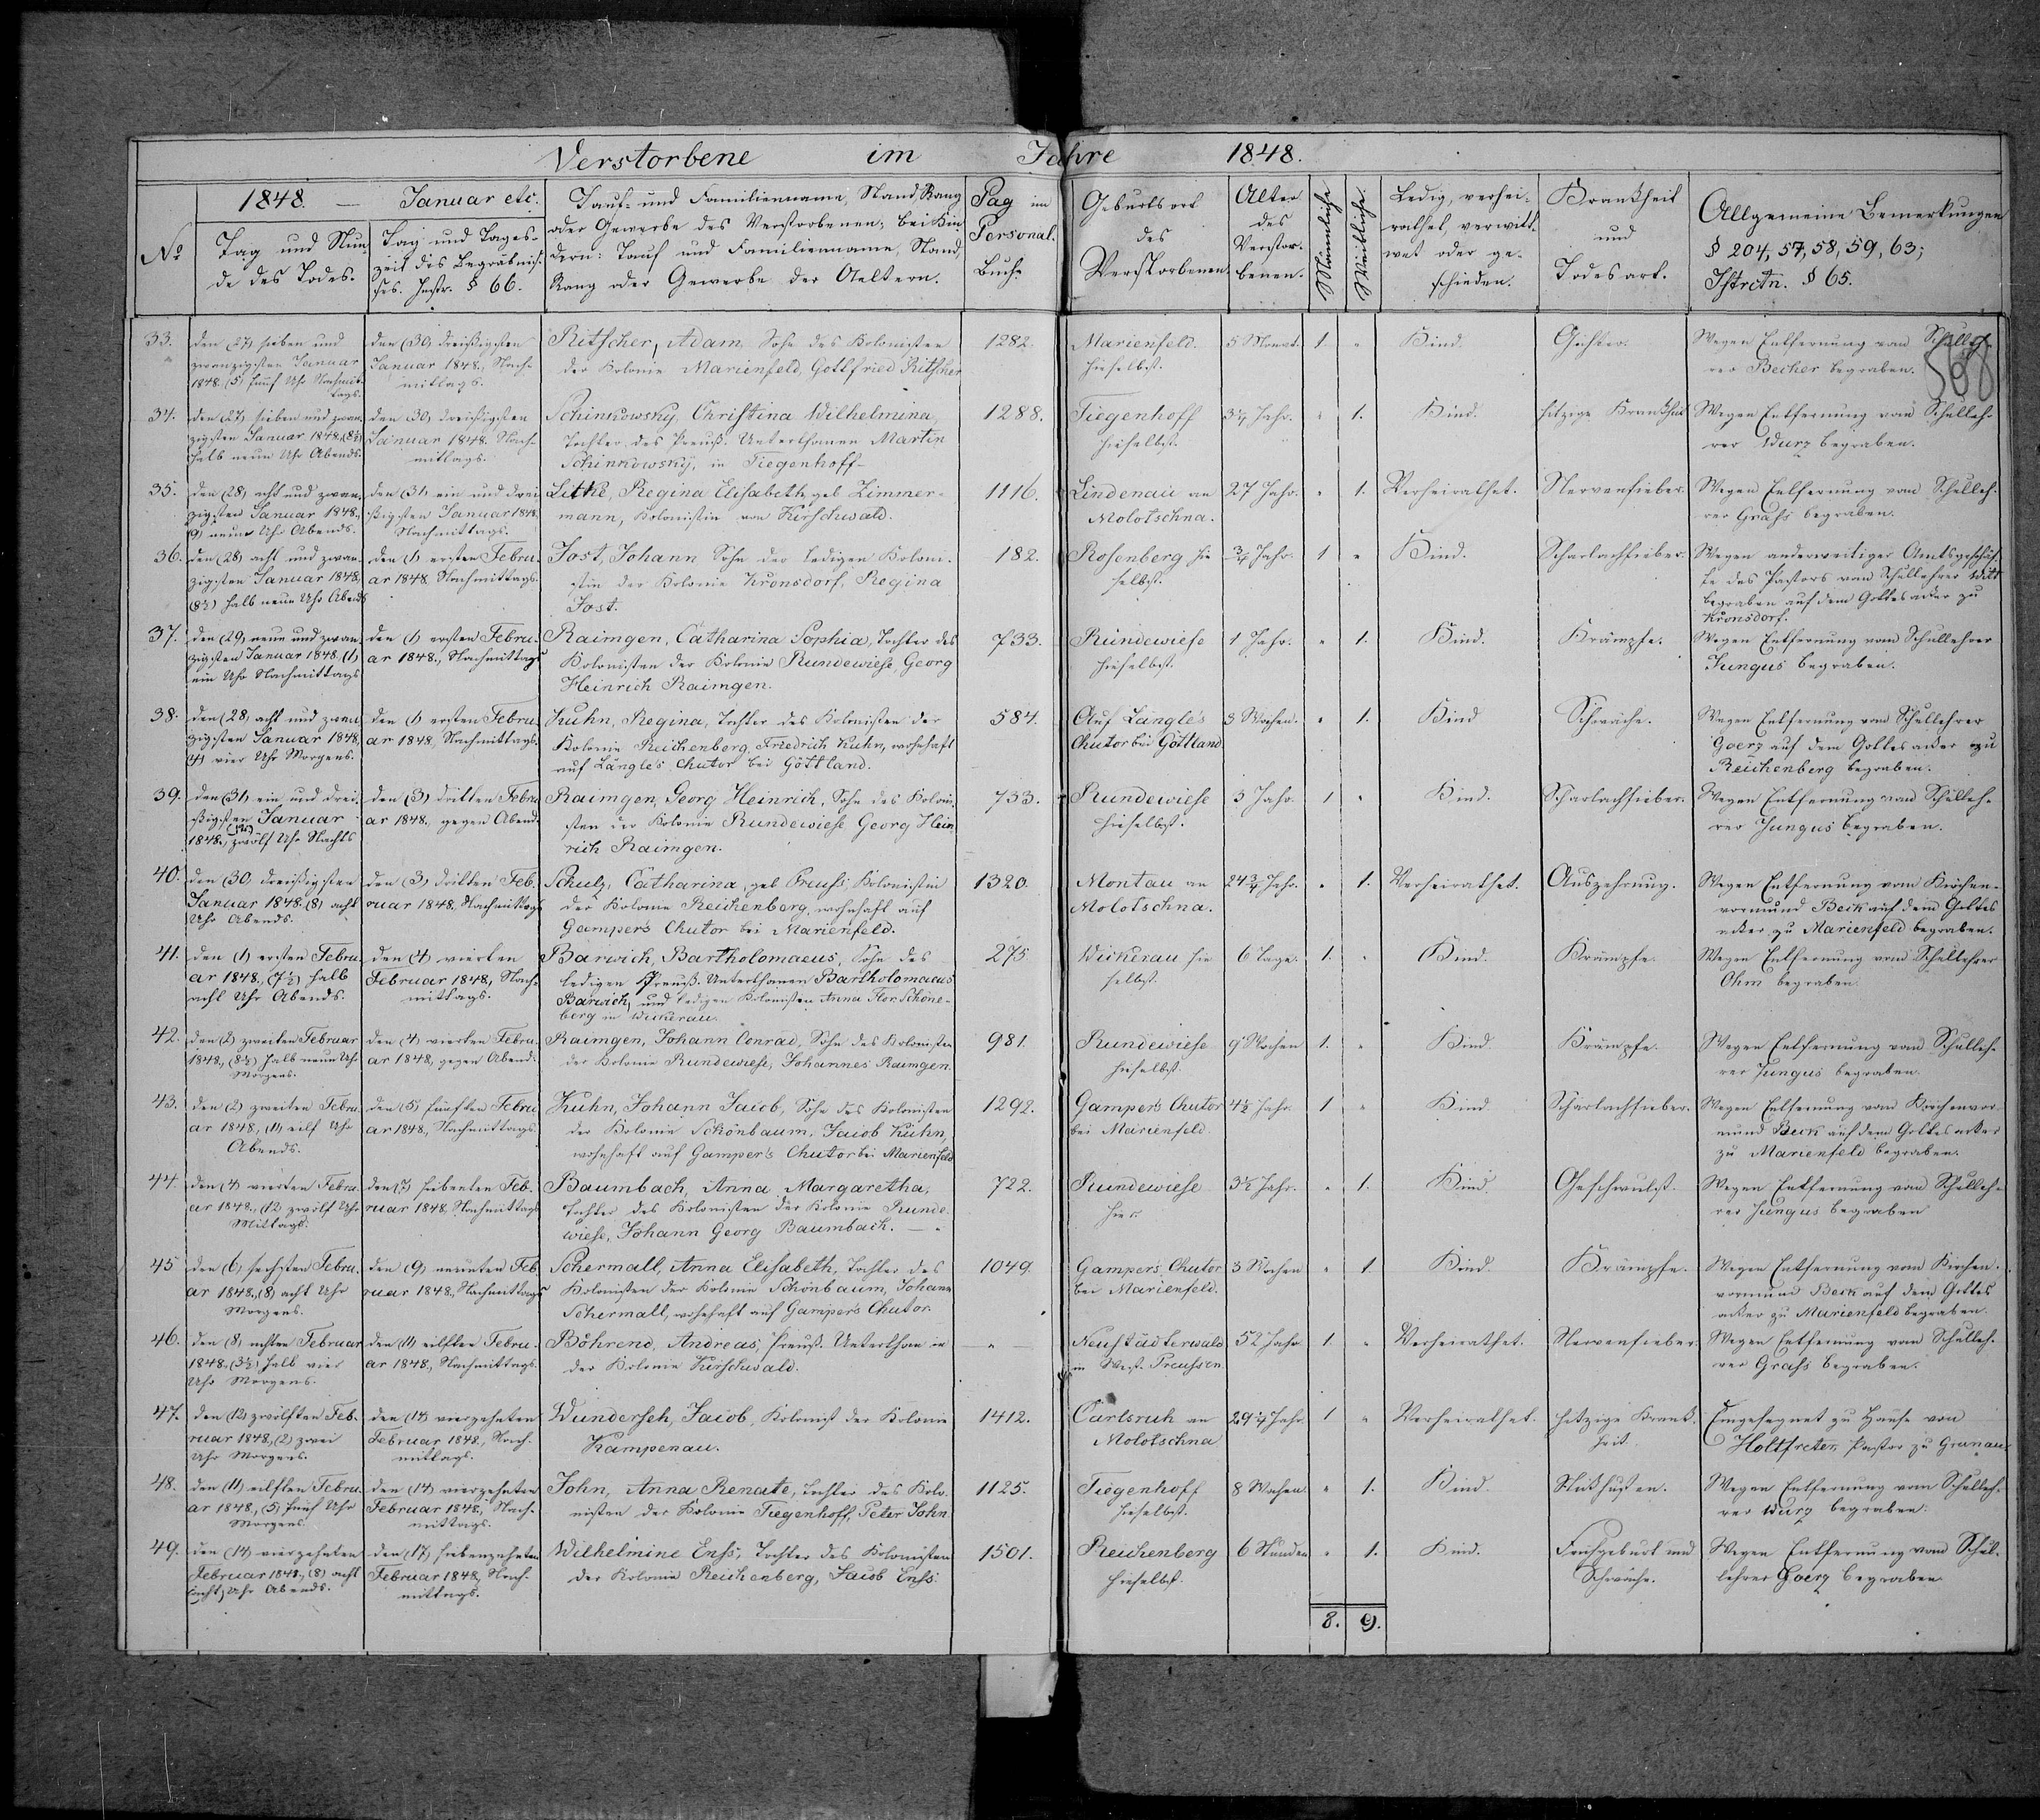 Verstorbene im Jahre 1848.
1848. — Januar etc.
No
Tag und Stun-
de des Todes.
Tag und Tages-
zeit des Begräbnis-
ses. Instr. § 66.
Tauf- und Familienname, Stand, Rang
oder Gewerbe des Verstorbenen; bei Kin-
dern: Tauf und Familienname, Stand,
Rang oder Gewerbe der Aeltern.
Pag im
Personal.
Buch.
Geburtsort
des
Verstorbenen.
Alter
des
Verstor-
benen.
Männliche
Weibliche.
Ledig, verhei-
rathet, verwitt-
wet oder ge-
schieden.
Krankheit
und
Todesart.
Allgemeine Bemerkungen
§ 204, 57, 58, 59, 63;
Istrctn. § 65.
568
33.
den (27) sieben und
zwanzigsten Januar
1848. (5) fünf Uhr Nachmit-
tags.
den (30) dreißigsten
Januar 1848., Nach-
mittags.
Ritscher, Adam, Sohn des Kolonisten
der Kolonie Marienfeld, Gottfried Ritscher
1282.
Marienfeld
hieselbst.
5 Monat. 1. "
Kind.
Gichter.
Wegen Entfernung vom Schulleh-
rer Becker begraben.
34.
den (27) sieben und zwan-
zigsten Januar 1848. (8½)
halb neun Uhr Abends.
den (30) dreißigsten
Januar 1848. Nach-
mittags.
Schinkowsky, Christina Wilhelmina,
Tochter des Preuß. Unterthanen Martin
Schinkowsky, in Tiegenhoff-
1288.
Tiegenhoff
hieselbst.
Jahr. " 1.
Kind.
hitzige Krankheit
Wegen Entfernung vom Schulleh-
rer Wurz begraben.
35.
den (28) acht und zwan-
zigsten Januar 1848.,
(9) neun Uhr Abends.
den (31) ein und drei
ßigsten Januar 1848.
Nachmittags.
Litke, Regina Elisabeth, geb Zimmer-
mann, Kolonistin von Kirschwald.
1116.
Lindenau an
Molotschna.
27 Jahr. " 1.
Verheirathet.
Nervenfieber.
Wegen Entfernung vom Schulleh-
rer Grafs begraben.
36.
den (28) acht und zwan-
zigsten Januar 1848,
(8½) halb neun Uhr Abends
den (1) ersten Febru-
ar 1848. Nachmittags.
Jost, Johann Sohn der ledigen Koloni-
stin der Kolonie Kronsdorf, Regina
Jost.
182.
Rosenberg hie
selbst.
¾ Jahr. 1 "
Kind.
Scharlachfieber.
Wegen anderweitiger Amtsgeschäf-
te des Pastors vom Schullehrer Witt
begraben auf dem Gottesacker zu
Kronsdorf.
37.
den (29) neun und zwan-
zigsten Januar 1848. (1)
ein Uhr Nachmittags
den (1) ersten Febru-
ar 1848., Nachmittags
Raimgen, Catharina Sophia, Tochter des
Kolonisten der Kolonie Rundewiese, Georg
Heinrich Raimgen.
733.
Rundewiese
hieselbst.
1 Jahr. " 1.
Kind.
Krämpfe.
Wegen Entfernung vom Schullehrer
Jungus begraben.
38.
den (28) acht und zwan
zigsten Januar 1848,
(4) vier Uhr Morgens.
den (1) ersten Febru-
ar 1848, Nachmittags.
Kuhn, Regina, Tochter des Kolonisten der
Kolonie Reichenberg, Friedrich Kuhn, wohnhaft
auf Längle's Chutor bei Göttland.
584.
Auf Längle's
Chutor bei Göttland
3 Wochen. " 1.
Kind
Schwäche.
Wegen Entfernung vom Schullehrer
Goerz auf dem Gottesacker zu
Reichenberg begraben.
39.
den (31) ein und drei-
ßigsten Januar
1848., (12) zwölf Uhr Nachts
den (3) dritten Febru
ar 1848., gegen Abend.
Raimgen, Georg Heinrich, Sohn des Koloni-
sten der Kolonie Rundewiese Georg Hein
rich Raimgen.
733.
Rundewiese
hieselbst.
3 Jahr. 1 "
Kind.
Scharlachfieber.
Wegen Entfernung vom Schulleh-
rer Jungus begraben.
40.
den (30) dreißigsten
Januar 1848. (8) acht
Uhr Abends.
den (3) dritten Feb-
ruar 1848. Nachmittags
Schulz, Catharina, geb Preuß; Kolonistin
der Kolonie Reichenberg, wohnhaft auf
Gamper's Chutor bei Marienfeld.
1320.
Montau an
Molotschna.
24¾ Jahr. " 1.
Verheirathet.
Auszehrung.
Wegen Entfernung vom Kirchen-
vormund Beck auf dem Gottes
acker zu Marienfeld begraben.
41.
den (1) ersten Febru
ar 1848., (7½) halb
acht Uhr Abends.
den (4) vierten
Februar 1848, Nach-
mittags.
Barwich, Bartholomaeus, Sohn des
ledigen Preuß. Unterthanen Bartholomaeus
Barwich, und ledigen Kolonisten Anna Flor. Schöne-
berg in Wickerau.
275
Wickerau hie
selbst.
6 Tage. 1. "
Kind.
Krämpfe.
Wegen Entfernung vom Schullehrer
Ohm begraben.
42.
den (2) zweiten Februar
1848., (8½) halb neun Uhr
Morgens.
den (4) vierten Febru-
ar 1848, gegen Abend.
Raimgen, Johann Conrad, Sohn des Kolonisten
der Kolonie Rundewiese, Johannes Raimgen.
981.
Rundewiese
hieselbst.
9 Wochen 1. "
Kind
Krämpfe.
Wegen Entfernung vom Schulleh-
rer Jungus begraben.
43.
den (2) zweiten Febru-
ar 1848, (11) eilf Uhr
Abends.
den (5) fünften Febru
ar 1848., Nachmittags.
Kuhn, Johann Jacob, Sohn des Kolonisten
der Kolonie Schönbaum, Jacob Kuhn,
wohnhaft auf Gamper's Chutor bei Marienfeld
1292.
Gamper's Chutor
bei Marienfeld.
4½ Jahr. 1 "
Kind
Scharlachfieber.
Wegen Entfernung vom Kirchenvor-
mund Beck auf dem Gottesacker
zu Marienfeld begraben.
44.
den (4) vierten Febru-
ar 1848., (12) zwölf Uhr
Mittags.
den (7) siebenten Feb-
ruar 1848. Nachmittags
Baumbach, Anna Margaretha,
Tochter des Kolonisten der Kolonie Runde
wiese, Johann Georg Baumbach.
722.
Rundewiese
hier.
3½ Jahr. " 1.
Kind.
Geschwulst.
Wegen Entfernung vom Schulleh-
rer Jungus begraben
45
den (6) sechsten Febru-
ar 1848., (8) acht Uhr
Morgens.
den (9) neunten Feb
ruar 1848., Nachmittags
Schermall, Anna Elisabeth, Tochter des
Kolonisten der Kolonie Schönbaum, Johann
Schermall, wohnhaft auf Gamper's Chutor.
1049.
Gamper's Chutor
bei Marienfeld.
3 Wochen " 1.
Kind.
Krämpfe.
Wegen Entfernung vom Kirchen-
vormund Beck auf dem Gottes
acker zu Marienfeld begraben.
46.
den (8) achten Februar
1848., (3½) halb vier
Uhr Morgens.
den (11) eilften Febru-
ar 1848, Nachmittags.
Böhrend, Andreas, Preuß. Unterthan in
der Kolonie Kirschwald.
"
Neustädterwald
in West-Preussen.
52 Jahr. 1. "
Verheirathet.
Nervenfieber.
Wegen Entfernung vom Schulleh-
rer Grafs begraben.
47.
den (12) zwölften Feb-
ruar 1848., (2) zwei
Uhr Morgens.
den (14) vierzehnten
Februar 1848., Nach-
mittags.
Wunderseh, Jacob, Kolonist der Kolonie
Kampenau.
1412.
Carlsruh an
Molotschna
29¼ Jahr 1 "
Verheirathet.
hitzige Krank-
heit.
Eingesegnet zu Hause von
Holtfreter, Pastor zu Grunau.
48.
den (11) eilften Febru-
ar 1848, (5) fünf Uhr
Morgens.
den (14) vierzehnten
Februar 1848., Nach-
mittags.
John, Anna Renate, Tochter des Kolo-
nisten der Kolonie Tiegenhoff, Peter John.
1125.
Tiegenhoff
hieselbst.
8 Wochen. " 1.
Kind.
Stickhusten.
Wegen Entfernung vom Schulleh-
rer Wurz begraben.
49.
den (14) vierzehnten
Februar 1848., (8) acht
Uhr Abends.
den (17) siebenzehnten
Februar 1848, Nach-
mittags.
Wilhelmine Enß, Tochter des Kolonisten
der Kolonie Reichenberg, Jacob Enß.
1501.
Reichenberg
hieselbst.
6 Stunden " 1.
Kind.
Frühgeburt und
Schwäche.
Wegen Entfernung vom Schul-
lehrer Goerz begraben
8. 9.